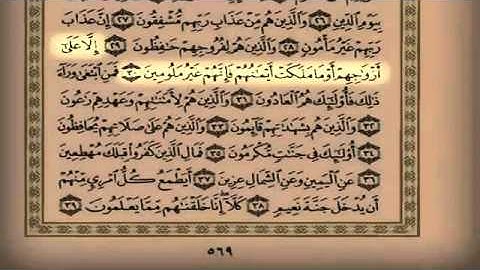 بِيَوْمِ ٱلدِّينِ ٢٦ وَٱلَّذِينَ هُم مِّنْ عَذَابِ رَبِّهِم مُّشْفِقُونَ ٢٧ إِنَّ عَذَابَ
رَبِّهِمْ غَيْرُ مَأْمُونٍ ٢٨ وَٱلَّذِينَ هُمْ لِفُرُوجِهِمْ حَٰفِظُونَ ٢٩ إِلَّا عَلَىٰٓ
أَزْوَٰجِهِمْ أَوْ مَا مَلَكَتْ أَيْمَٰنُهُمْ فَإِنَّهُمْ غَيْرُ مَلُومِينَ ٣٠ فَمَنِ ٱبْتَغَىٰ وَرَآءَ
ذَٰلِكَ فَأُو۟لَٰٓئِكَ هُمُ ٱلْعَادُونَ ٣١ وَٱلَّذِينَ هُمْ لِأَمَٰنَٰتِهِمْ وَعَهْدِهِمْ رَٰعُونَ
٣٢ وَٱلَّذِينَ هُم بِشَهَٰدَٰتِهِمْ قَآئِمُونَ ٣٣ وَٱلَّذِينَ هُمْ عَلَىٰ صَلَاتِهِمْ يُحَافِظُونَ
٣٤ أُو۟لَٰٓئِكَ فِى جَنَّٰتٍ مُّكْرَمُونَ ٣٥ فَمَالِ ٱلَّذِينَ كَفَرُوا۟ قِبَلَكَ مُهْطِعِينَ
٣٦ عَنِ ٱلْيَمِينِ وَعَنِ ٱلشِّمَالِ عِزِينَ ٣٧ أَيَطْمَعُ كُلُّ ٱمْرِئٍ مِّنْهُمْ
أَن يُدْخَلَ جَنَّةَ نَعِيمٍ ٣٨ كَلَّآ إِنَّا خَلَقْنَٰهُم مِّمَّا يَعْلَمُونَ ٣٩
٥٦٩